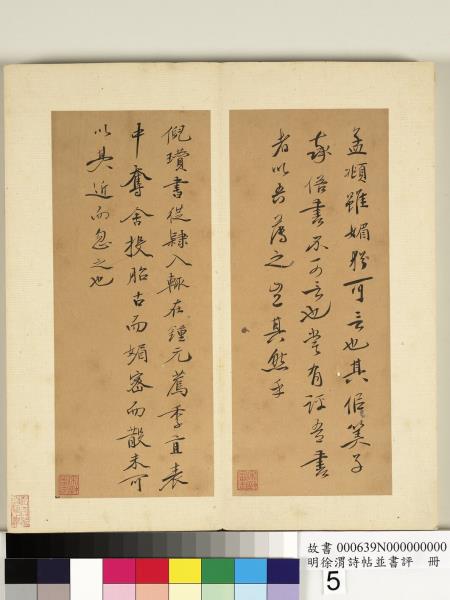 孟頫雖媚猶可言也其似算子
率俗書不可言也嘗有評吾書
者以吾薄之豈其然乎
倪瓚書從隸入輒在鍾元常薦季直表
中奪舍投胎古而媚密而散未可
以其近而忽之也
故書 000639N000000000
明徐渭詩帖並書評 冊
5